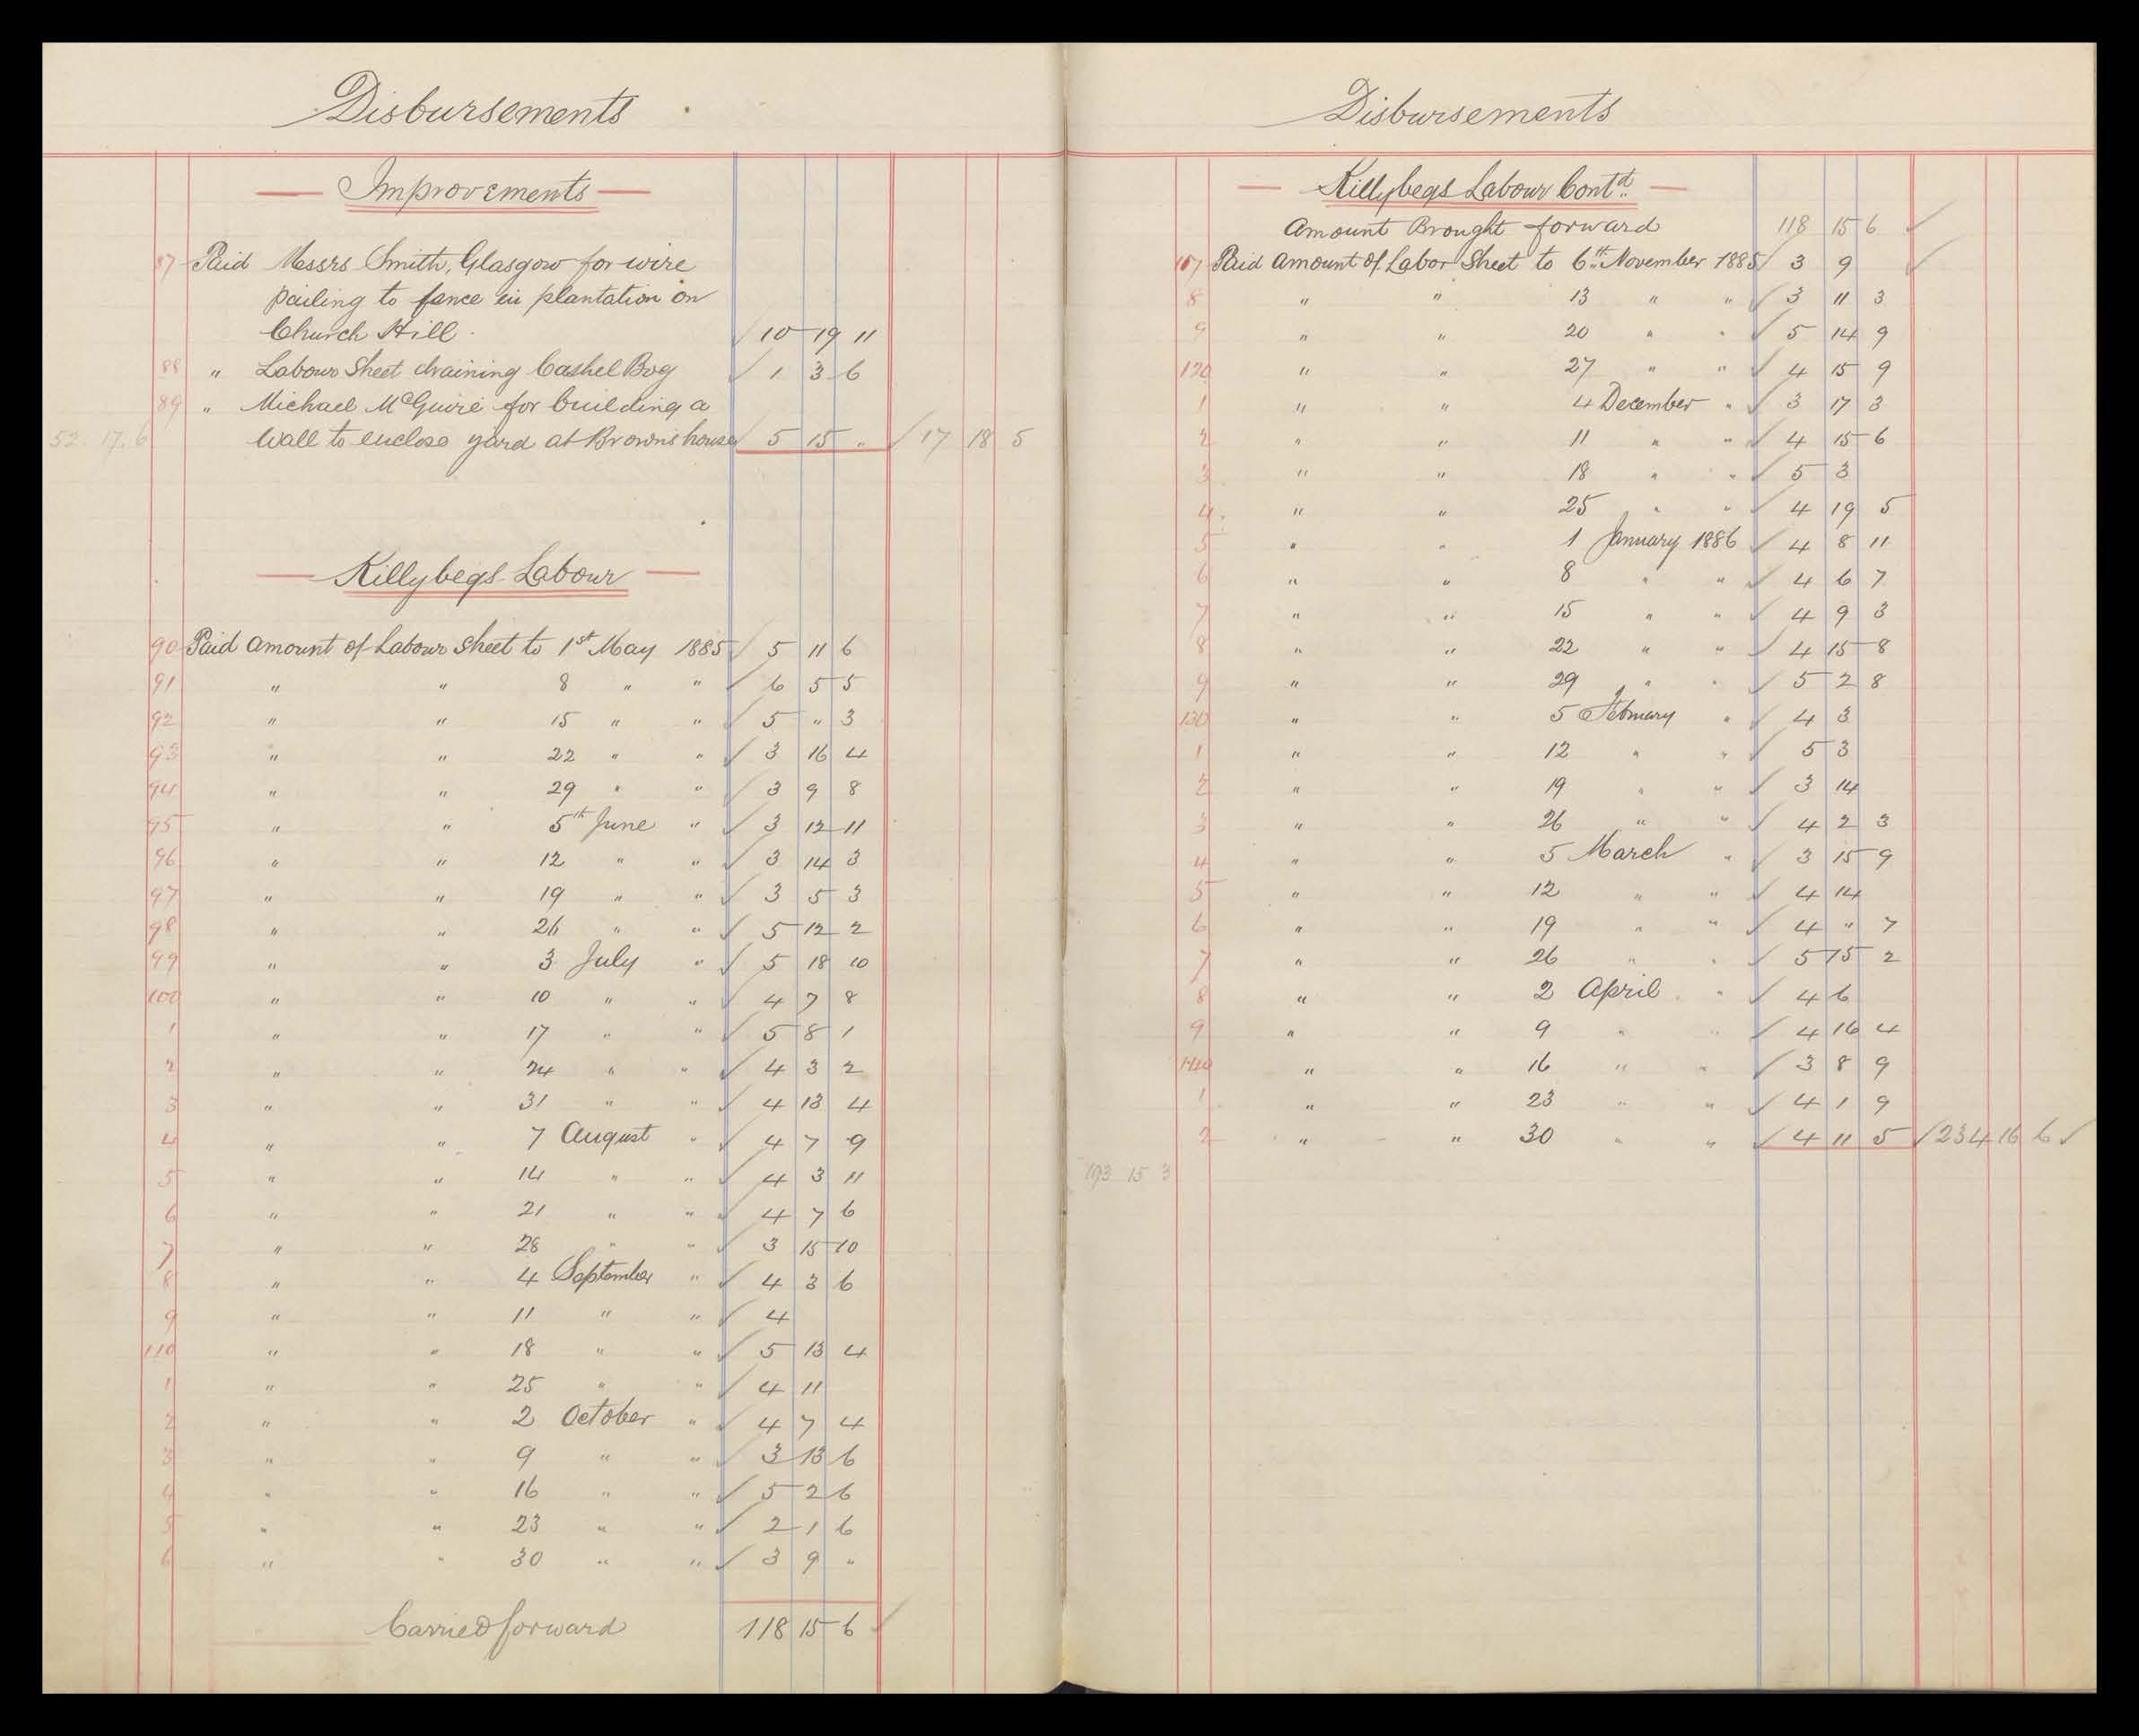 Disbursements
Improvements
87 Paid Messrs Smith, Glasgow for wire
pailing to fence in plantation on
Church Hill. ✓ 10 19 11
88 " Labour Sheet draining Cashel Bog ✓ 1 3 6
89 " Michael McGuire for building a
52. 17. 6 Wall to enclose yard at Brown's house 5 15 " ✓ 17 18 5
Killybegs Labour
90 Paid amount of Labour Sheet to 1st May 1885 ✓ 5 11 6
91 " " 8 " " ✓ 6 5 5
92 " " 15 " " ✓ 5 " 3
93 " " 22 " " ✓ 3 16 4
94 " " 29 " " ✓ 3 9 8
95 " " 5th June " ✓ 3 12 11
96 " " 12 " " ✓ 3 14 3
97 " " 19 " " ✓ 3 5 3
98 " " 26 " " ✓ 5 12 2
99 " " 3 July " ✓ 5 18 10
100 " " 10 " " ✓ 4 7 8
1 " " 17 " " ✓ 5 8 1
2 " " 24 " " ✓ 4 3 2
3 " " 31 " " ✓ 4 13 4
4 " " 7 August " ✓ 4 7 9
5 " " 14 " " ✓ 4 3 11
6 " " 21 " " ✓ 4 7 6
7 " " 28 " " ✓ 3 15 10
8 " " 4 September " ✓ 4 3 6
9 " " 11 " " ✓ 4
110 " " 18 " " ✓ 5 13 4
1 " " 25 " " ✓ 4 11
2 " " 2 October " ✓ 4 7 4
3 " " 9 " " ✓ 3 13 6
4 " " 16 " " ✓ 5 2 6
5 " " 23 " " ✓ 2 1 6
6 " " 30 " " ✓ 3 9 "
Carried forward 118 15 6 ✓
Disbursements
Killybegs Labour Contd.
Amount Brought forward 118 15 6 ✓
Paid amount of Labor Sheet to 6th November 1885 ✓ 3 9 ✓
8 " " 13 " " ✓ 3 11 3
9 " " 20 " " ✓ 5 14 9
120 " " 27 " " ✓ 4 15 9
1 " " 4 December " ✓ 3 17 3
2 " " 11 " " ✓ 4 15 6
3 " " 18 " " ✓ 5 3
4 " " 25 " " ✓ 4 19 5
5 " " 1 January 1886 ✓ 4 8 11
6 " " 8 " " ✓ 4 6 7
7 " " 15 " " ✓ 4 9 3
8 " " 22 " " ✓ 4 15 8
9 " " 29 " " ✓ 5 2 8
130 " " 5 February " ✓ 4 3
1 " " 12 " " ✓ 5 3
2 " " 19 " " ✓ 3 14
3 " " 26 " " ✓ 4 2 3
4 " " 5 March " ✓ 3 15 9
5 " " 12 " " ✓ 4 14
6 " " 19 " " ✓ 4 " 7
7 " " 26 " " ✓ 5 15 2
8 " " 2 April " ✓ 4 6
9 " " 9 " " ✓ 4 16 4
140 " " 16 " " ✓ 3 8 9
1 " " 23 " " ✓ 4 1 9
2 " " 30 " " ✓ 4 11 5 ✓ 234 16 6 ✓
193 15 3